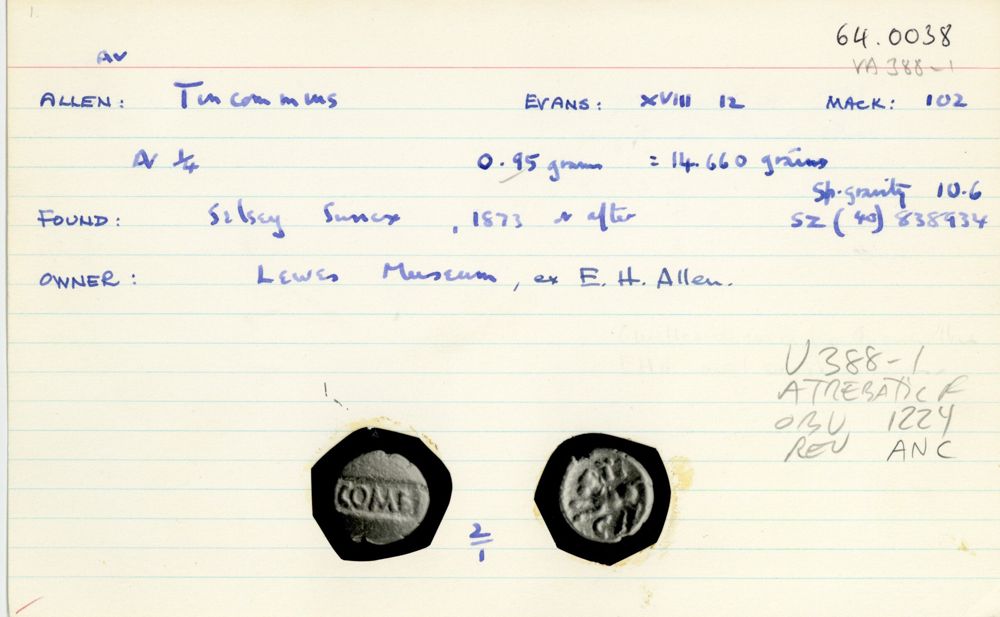 64.0038
AV
VA 388-1
ALLEN: Tincommius EVANS: XVIII 12 MACK: 102
AV 1/4 0.95 grams = 14.660 grains
Sp. gravity 10.6
FOUND: Selsey Sussex, 1873 & after SZ (40) 838934
OWNER: Lewes Museum, ex E. H. Allen.
V 388-1
ATREBATIC F
OBV 1224
REV ANC
COMF
2/1